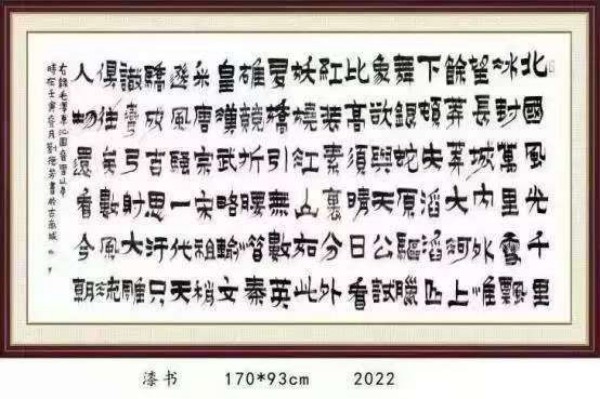 北國風光千里
冰封萬里雪飄
望長城內外惟
餘莽莽大河上
下頓失滔滔山
舞銀蛇原驅臘
象欲與天公試
比高須晴日看
紅裝素裹分外
妖嬈江山如此
多嬌引無數英
雄競折腰惜秦
皇漢武略輸文
采唐宗宋祖稍
遜風騷一代天
驕成吉思汗只
識彎弓射大雕
俱往矣數風流
人物還看今朝
右錄毛澤東沁園春雪
時在壬寅
漆书 170*93cm 2022